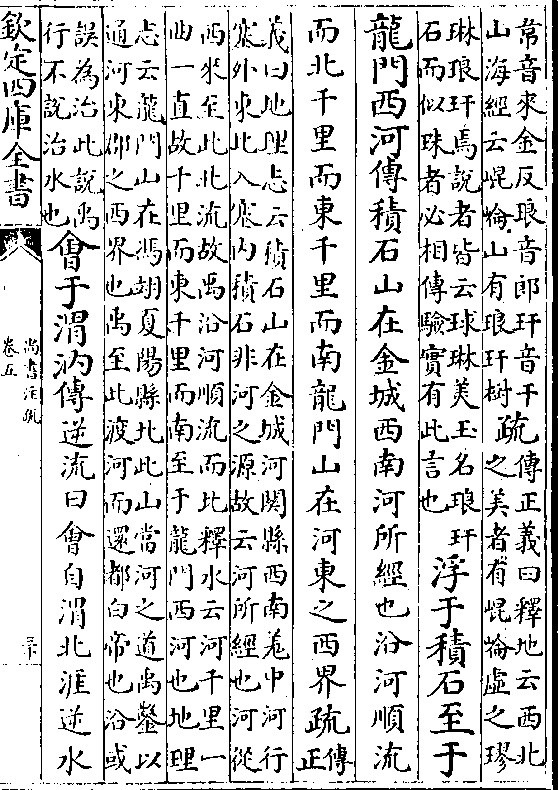 常音來金反琅音郎玕音干
山海經云崐崘山有琅玕樹
疏
傳正義曰釋地云西北
之美者有崐崘虛之璆
琳琅玕焉說者皆云球琳美玉名琅玕
石而似珠者必相傳驗實有此言也
浮于積石至于
龍門西河傳積石山在金城西南河所經也沿河順流
而北千里而東千里而南龍門山在河東之西界疏
傳
正
義曰地理志云積石山在金城河關縣西南羌中河行
塞外東北入塞内積石非河之源故云河所經也河從
西來至此北流故禹沿河順流而北釋水云河千里一
曲一直故千里而東千里而南至于龍門西河也地理
志云龍門山在馮翊夏陽縣北此山當河之道禹鑿以
通河東郡之西界也禹至此渡河而還都白帝也沿或
誤為治此說禹
行不說治水也
會于渭汭傳逆流曰會自渭北涯逆水
欽定四庫全書
尚書注疏
卷五
三十